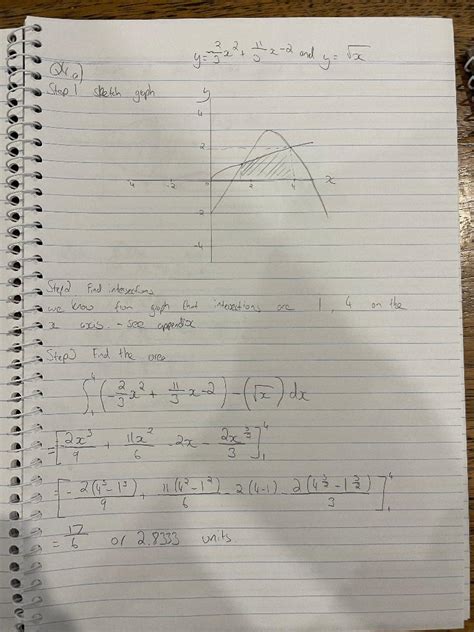 y = -2/3 x² + 11/3 x - 2 and y = √x
Q4.a)
Step 1 sketch graph
y
4
2
-4 -2 2 4 x
-2
-4
Step 2 Find intersections
we know from graph that intersections are 1, 4 on the
x axis. - see appendix
Step 3 Find the area
∫₁⁴ (-2/3 x² + 11/3 x - 2) - (√x) dx
= [2x³/9 + 11x²/6 - 2x - 2x^(3/2)/3]₁⁴
= [-2(4³-1³)/9 + 11(4²-1²)/6 - 2(4-1) - 2(4^(3/2) - 1^(3/2))/3]₁⁴
= 17/6 or 2.8333 units